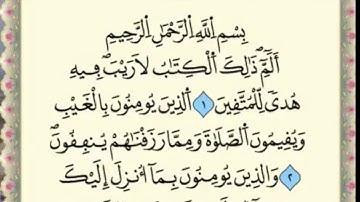 بِسْمِ اِ۬للَّهِ اِ۬لرَّحْمَٰنِ اِ۬لرَّحِيمِ
أَلَٓمِّٓۖ ذَٰلِكَ اَ۬لْكِتَٰبُ لَا رَيْبَۖ فِيهِ
هُدىٗ لِّلْمُتَّقِينَ ١ اَ۬لذِينَ يُومِنُونَ بِالْغَيْبِ
وَيُقِيمُونَ اَ۬لصَّلَوٰةَ وَمِمَّا رَزَقْنَٰهُمْ يُنفِقُونَۖ
٢ وَالذِينَ يُومِنُونَ بِمَآ أُنزِلَ إِلَيْكَ